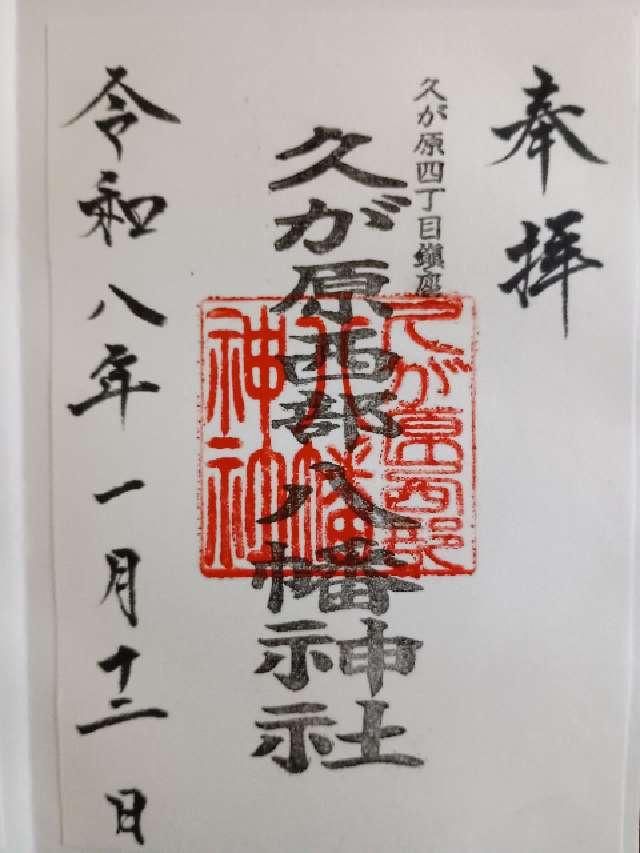 奉拝
久が原四丁目鎮座
久が原西部八幡神社
久が原西部
八幡
神社
令和八年一月十二日